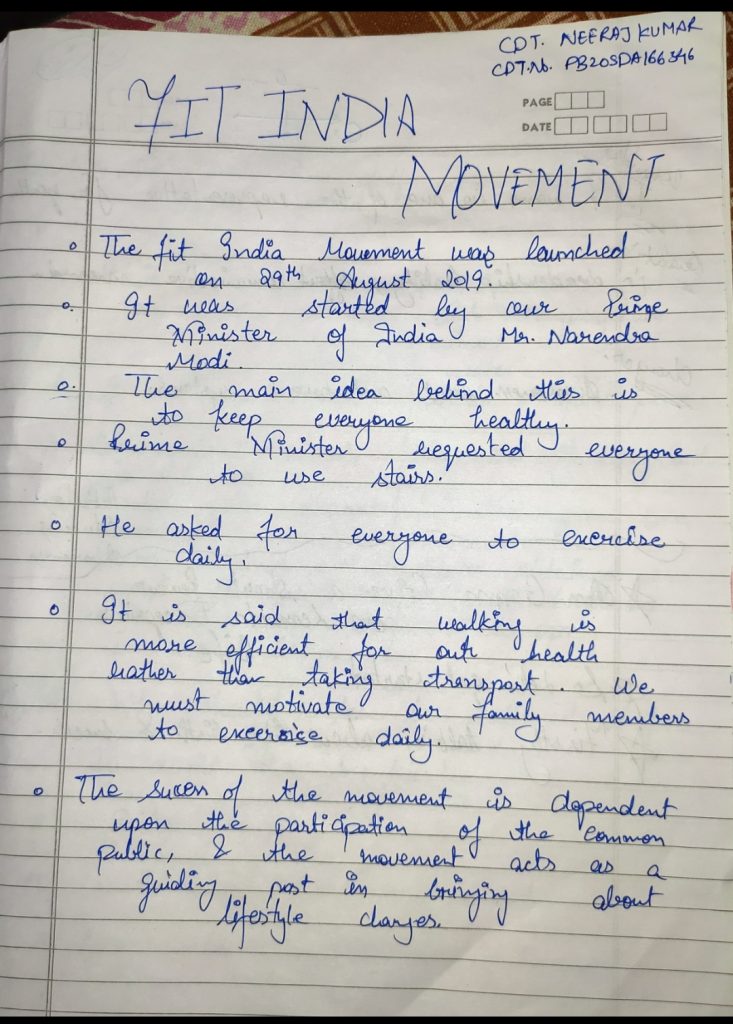 CDT. NEERAJ KUMAR
CDT.No. PB20SDA166346
PAGE
DATE
FIT INDIA
MOVEMENT
The fit India Movement was launched
on 29th August 2019.
It was started by our Prime
Minister of India Mr. Narendra
Modi.
The main idea behind this is
to keep everyone healthy.
Prime Minister requested everyone
to use stairs.
He asked for everyone to exercise
daily.
It is said that walking is
more efficient for our health
rather than taking transport. We
must motivate our family members
to excercise daily.
The succes of the movement is dependent
upon the participation of the common
public, & the movement acts as a
guiding post in bringing about
lifestyle changes.